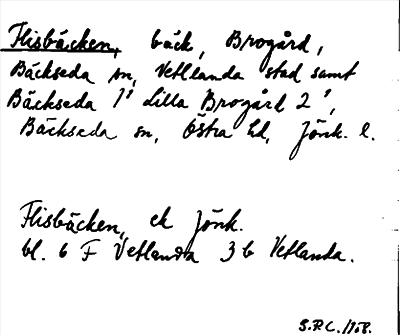 Flisbäcken, bäck, Brogård,
Bäckseda sn, Vetlanda stad samt
Bäckseda 1' Lilla Brogård 2',
Bäckseda sn, Östra hd, Jönk. l.
Flisbäcken, ek Jönk.
bl. 6 F Vetlanda 3 b Vetlanda.